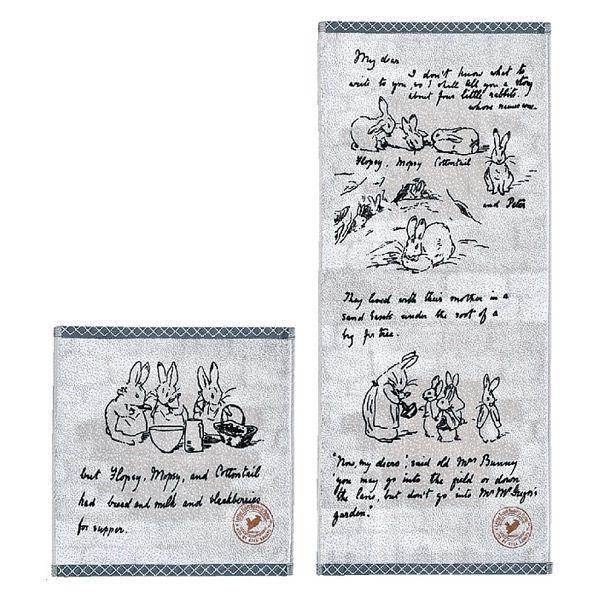 My dear
I don't know what to
write to you, so I shall tell you a story
about four little rabbits.
whose names were.
Flopsy, Mopsy Cottontail
and Peter
They lived with their mother in a
sand bank under the root of a
big fir tree.
"Now, my dears", said old Mrs Bunny
'you may go into the field or down
the lane, but don't go into Mr McGregor's
garden."
but Flopsy, Mopsy, and Cottontail
had bread and milk and blackberries
for supper.